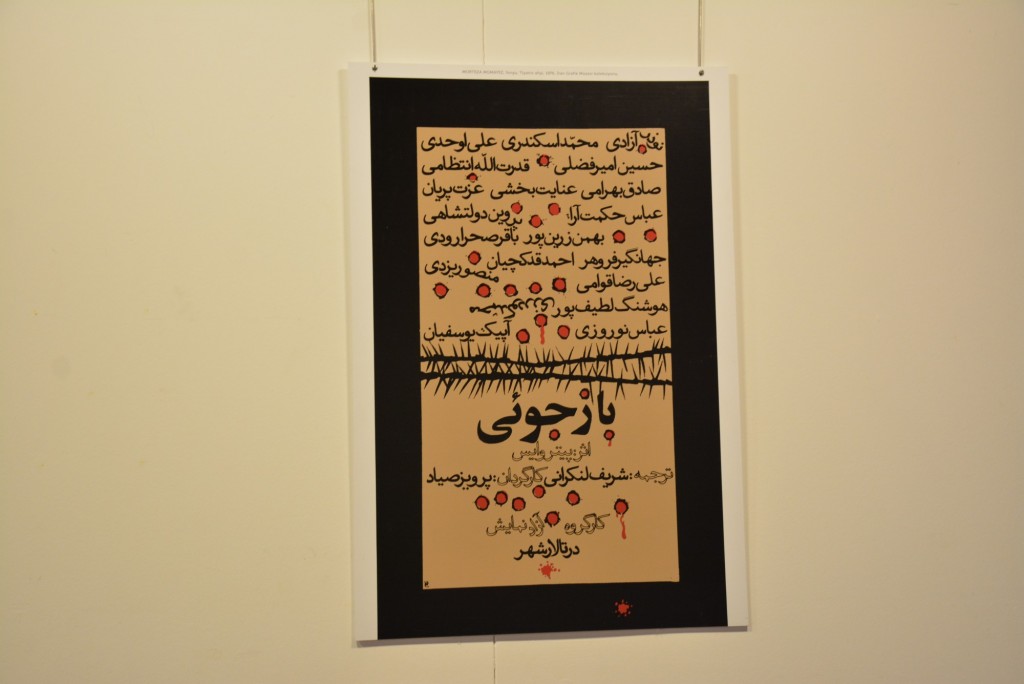 آزادی محمداسکندری علی اوحدی
حسین امیرفضلی قدرت‌اللّه انتظامی
صادق بهرامی عنایت بخشی عزت پریان
عباس حکمت‌آرا پروین دولتشاهی
بهمن زرین‌پور باقر صحرارودی
جهانگیر فروهر احمد قدکچیان
علی رضا قوامی منصور یزدی
هوشنگ لطیف‌پور محمد گودرزی
عباس نوروزی آپیک یوسفیان
بازجوئی
اثر: پیتر وایس
ترجمه: شریف لنکرانی کارگردان: پرویز صیاد
کارگروه آزاد نمایش
در تالار شهر